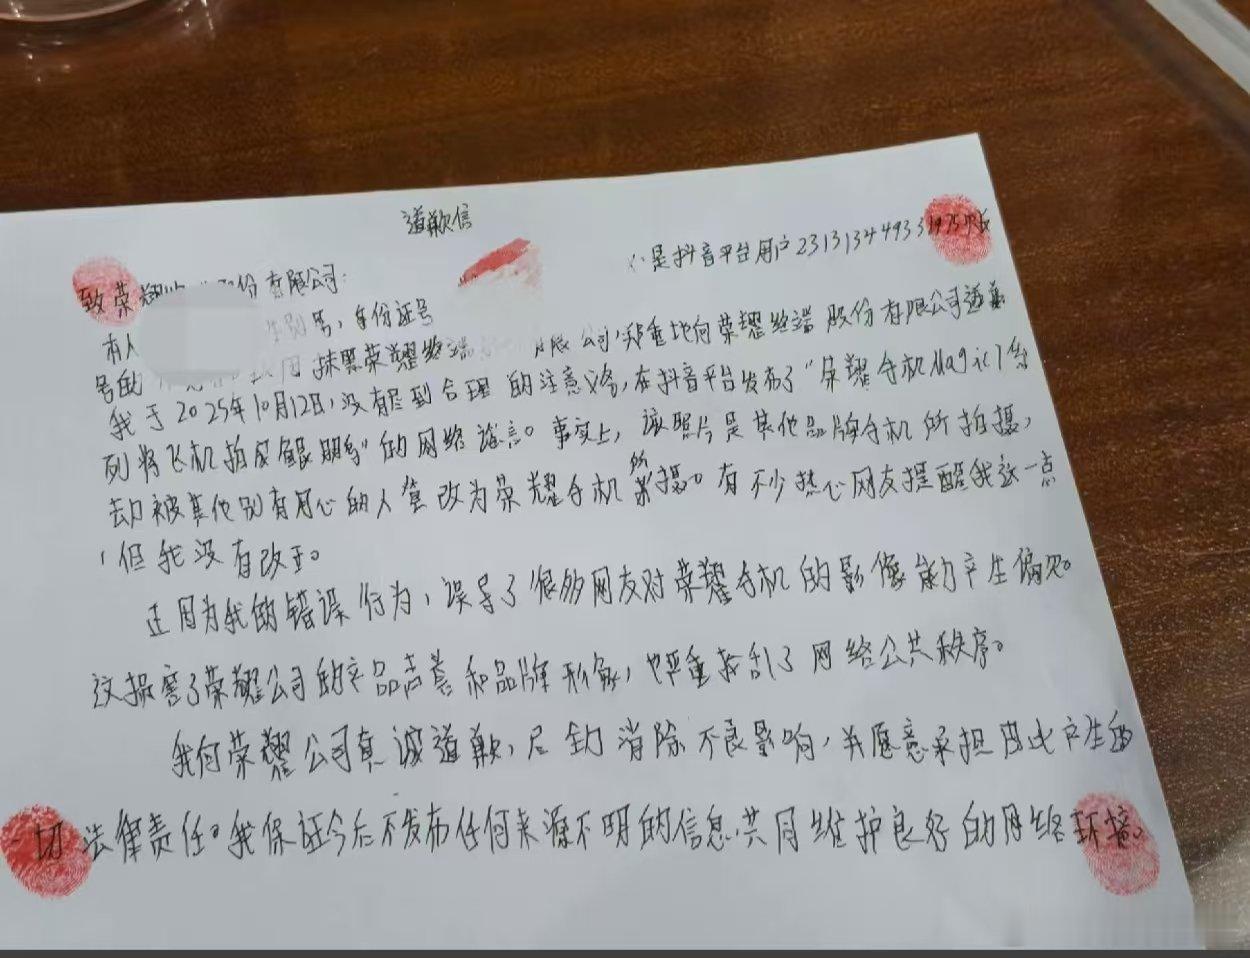 道歉信
致荣耀 股份有限公司:
本人 性别男,身份证号 是抖音平台用户231313449331975账
号的 因抹黑荣耀终端 有限公司,郑重地向荣耀终端股份有限公司道歉
我于2025年10月12日,没有尽到合理的注意义务,在抖音平台发布了“荣耀手机Magic7系
列将飞机拍成鲲鹏”的网络谣言。事实上,该照片是其他品牌手机所拍摄,
却被其他别有用心的人篡改为荣耀手机所摄。有不少热心网友提醒我这一点
,但我没有改正。
正因为我的错误行为,误导了很多网友对荣耀手机的影像能力产生偏见。
这损害了荣耀公司的产品声誉和品牌形象,也严重扰乱了网络公共秩序。
我向荣耀公司真诚道歉,尽力消除不良影响,并愿意承担因此产生的
一切法律责任。我保证今后不发布任何来源不明的信息,共同维护良好的网络环境。